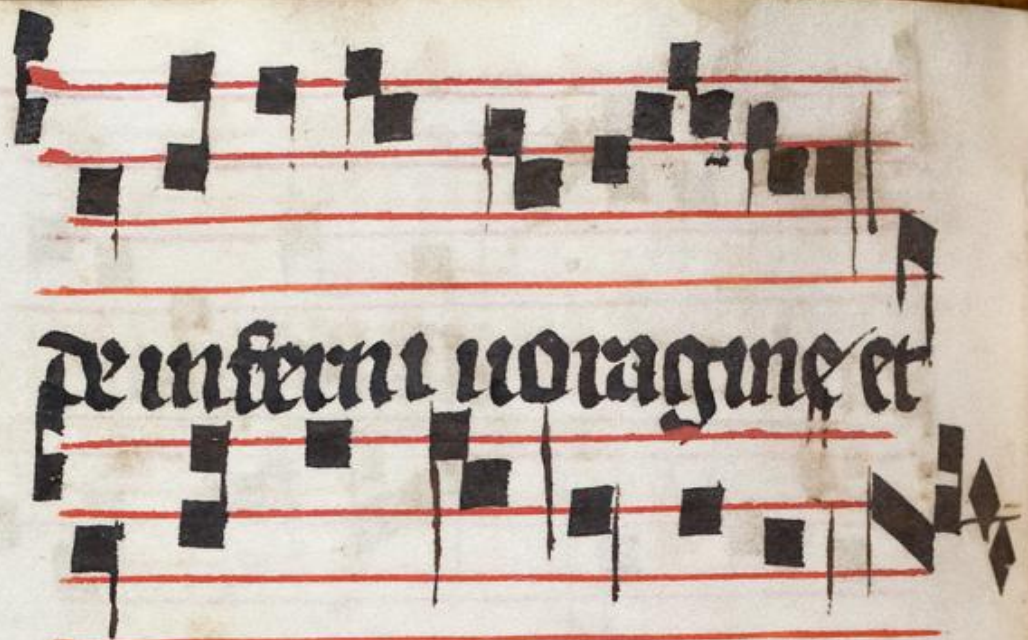 de inferni uoragine et